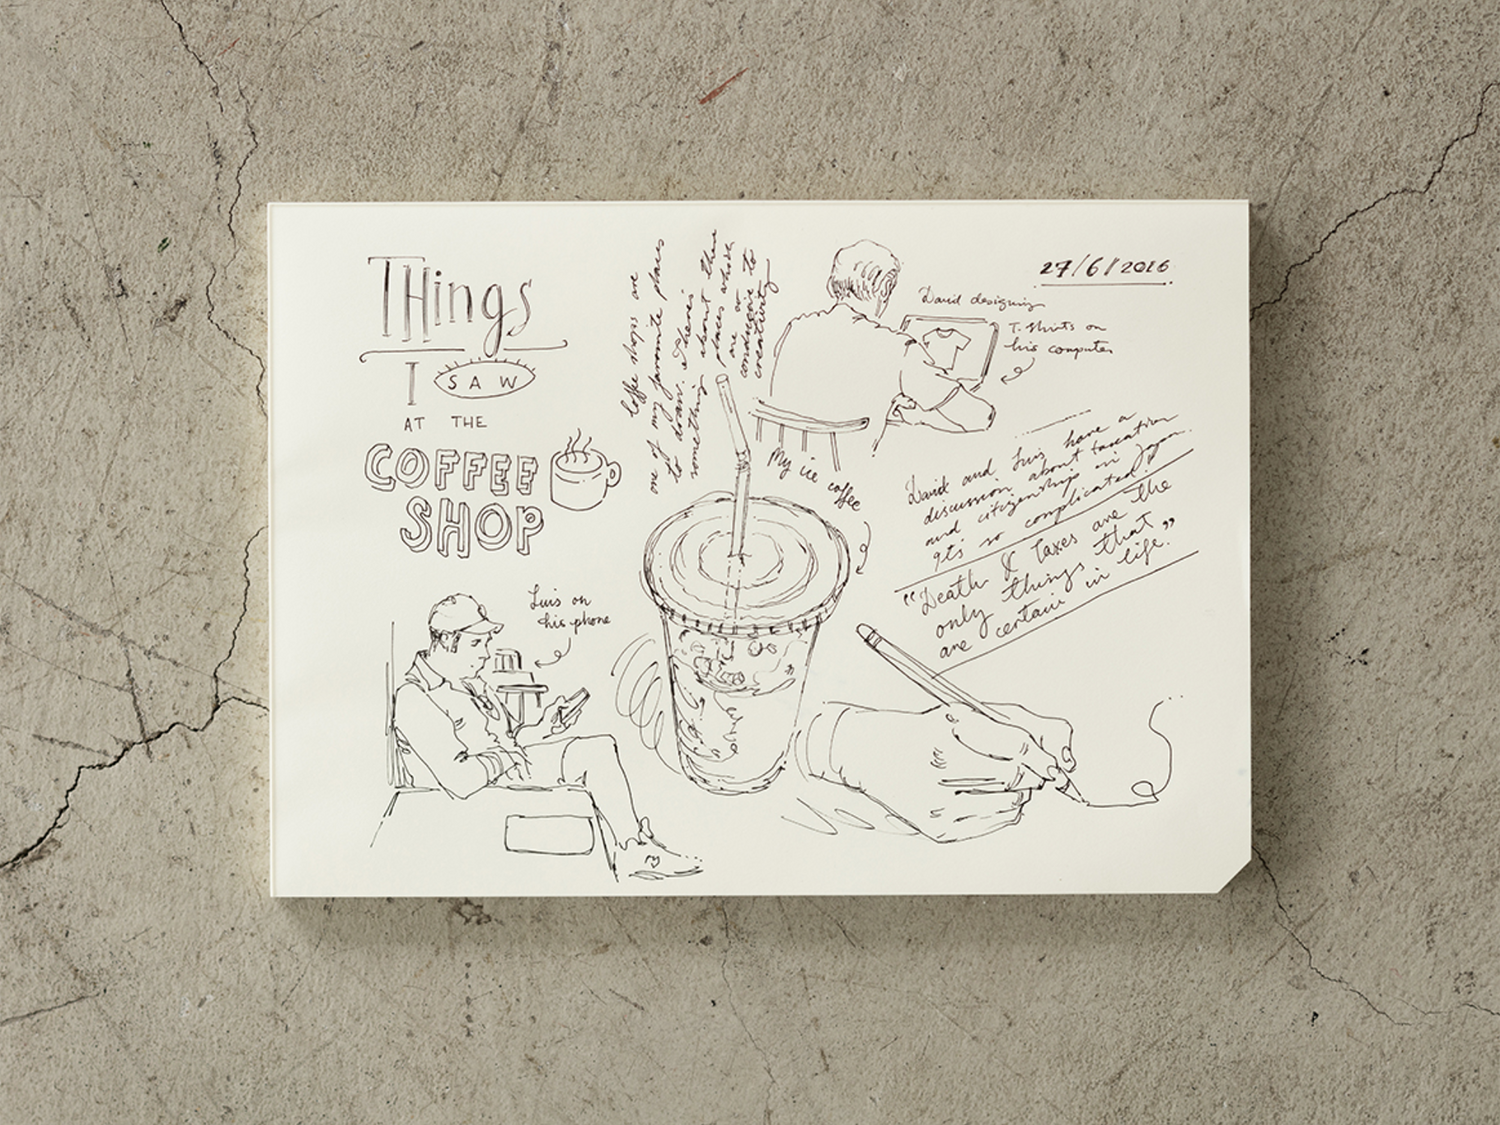 THings
I SAW
AT THE
COFFEE
SHOP
Coffee shops are
one of my favourite places
to draw. There's
something about these
places which
are so
conducive to
creativity
27/6/2016
David designing
T-shirts on
his computer
My ice coffee
David and Luis have a
discussion about taxation
and citizenship in Japan.
It's so complicated!
"Death & Taxes are the
only things that
are certain in life."
Luis on
his phone